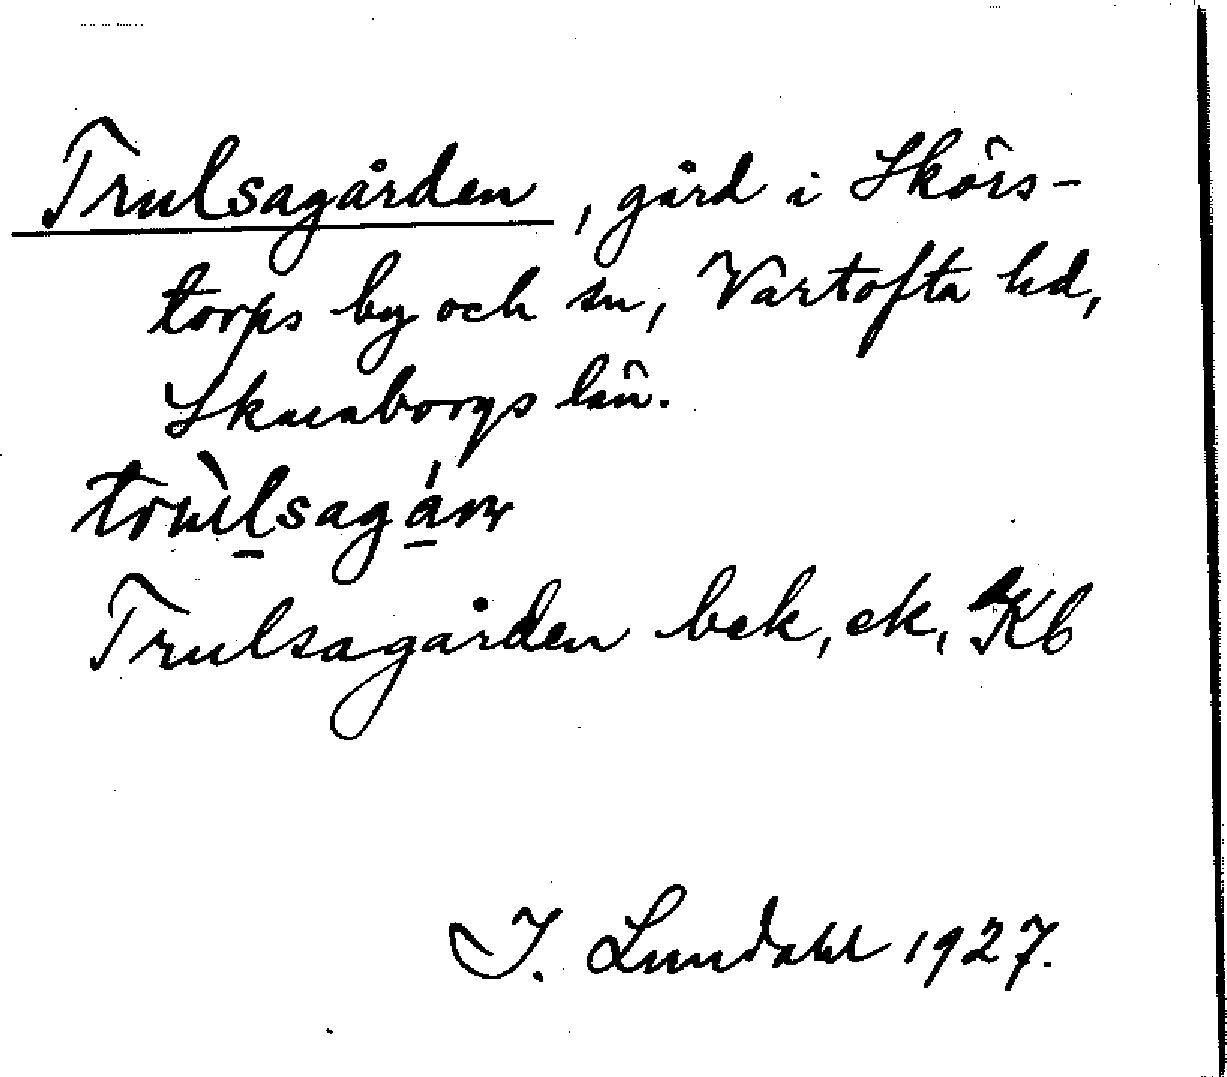 Trulsagården, gård i Skörs-
torps by och sn, Vartofta hd,
Skaraborgs län.
Trulsagården bek, ek, Kb
I. Lundahl 1927.